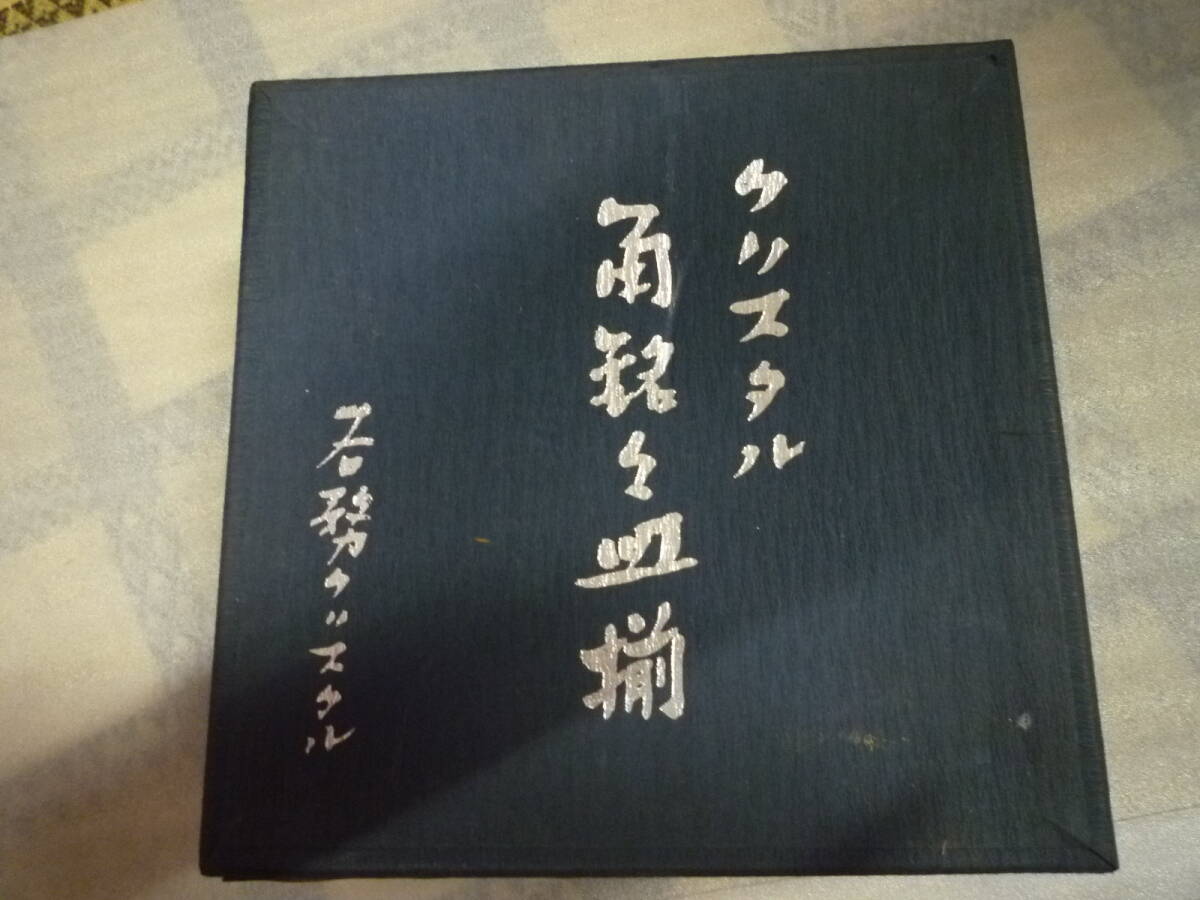 クリスタル
角銘々皿揃
各務クリスタル